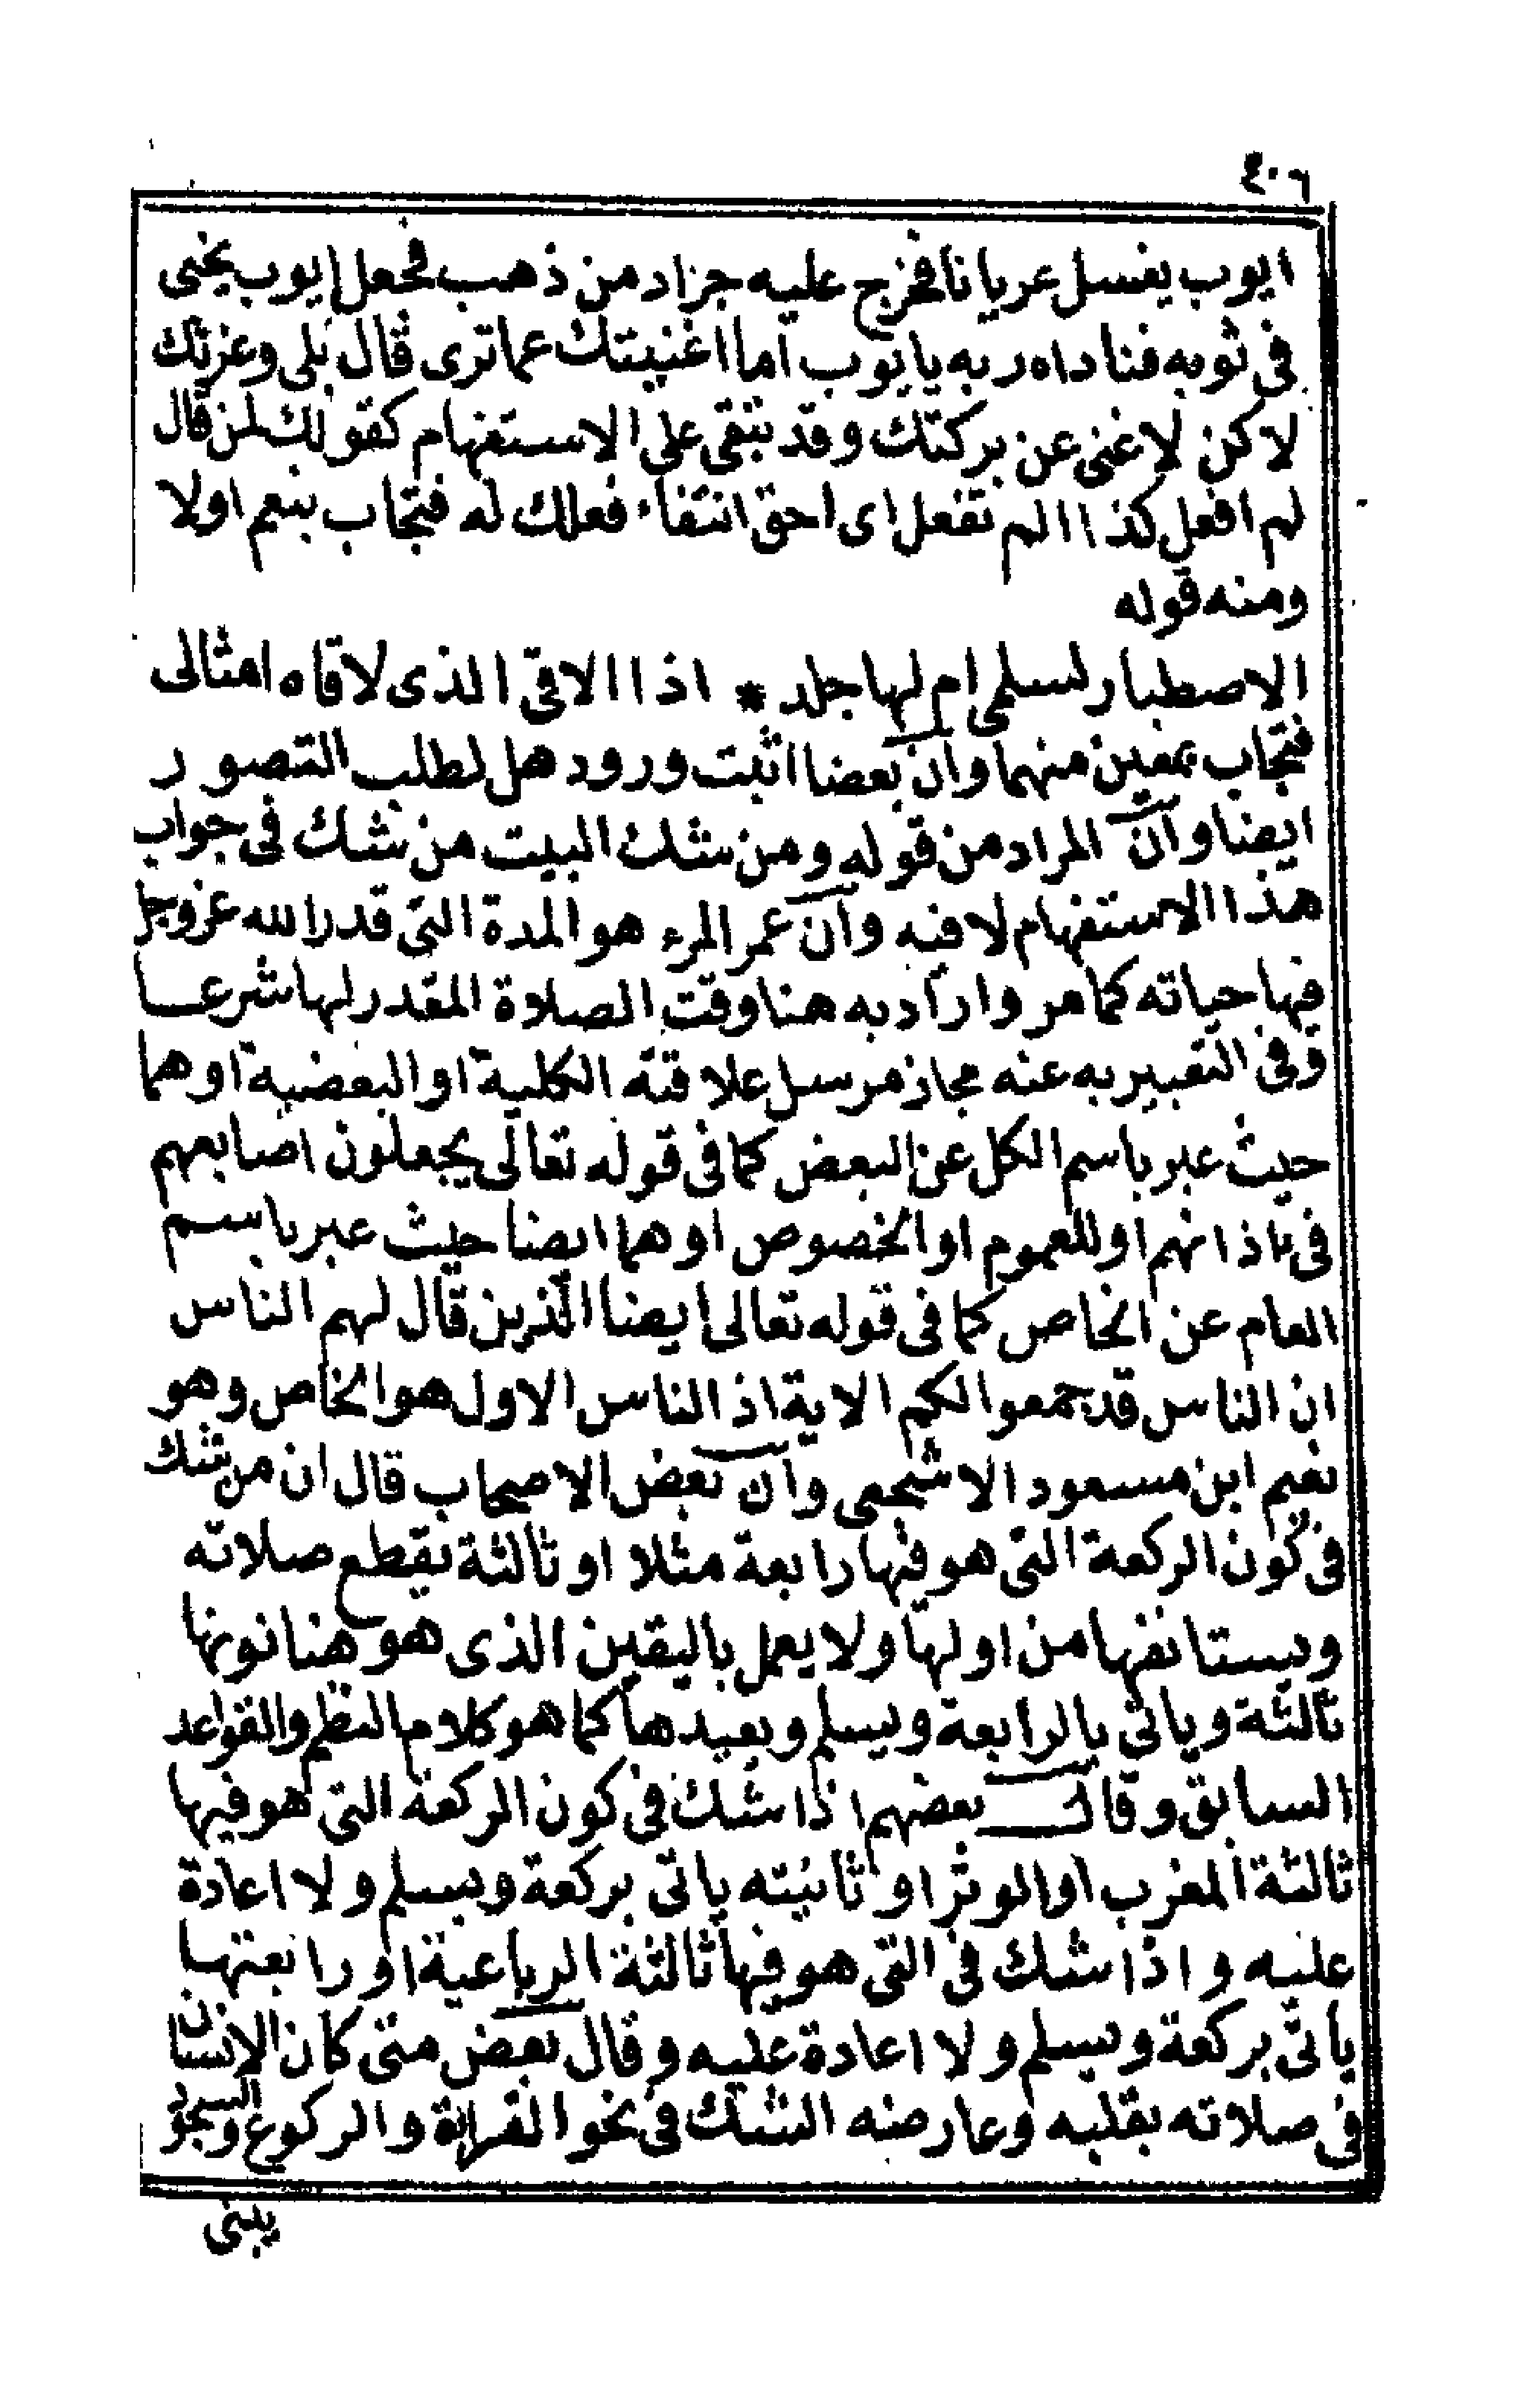 ٤٠٦
ايوب يغسل عريانا فخرج عليه جراد من ذهب فجعل ايوب يحثى
فى ثوبه فناداه ربه يا ايوب اما اغنيتك عما ترى قال بلى وعزتك
لاكن لا غنى عن بركتك وقد تبقى على الاستفهام كقولك لمن قال
لم افعل كذا الم تفعل اى احق انتفاء فعلك له فتجاب بنعم اولا
ومنه قوله
الا صطبار لسلمى ام لها جلد * اذا الاقى الذى لاقاه امثالى
فتجاب بمعين منهما وان بعضا اثبت ورود هل لطلب التصور
ايضا وان المراد من قوله ومن شك البيت من شك فى جواب
هذا الاستفهام لا فيه وان عمر المرء هو المدة التى قدر الله عز وجل
فيها حياته كما مر واراد به هنا وقت الصلاة المقدر لها شرعا
وفى التعبير به عنه مجاز مرسل علاقته الكلية او البعضية او هما
حيث عبر باسم الكل عن البعض كما فى قوله تعالى يجعلون اصابعهم
فى ءاذانهم او للعموم او الخصوص او هما ايضا حيث عبر باسم
العام عن الخاص كما فى قوله تعالى ايضا الذين قال لهم الناس
ان الناس قد جمعوا لكم الاية اذ الناس الاول هو الخاص وهو
نعيم ابن مسعود الاشجعى وان بعض الاصحاب قال ان من شك
فى كون الركعة التى هو فيها رابعة مثلا او ثالثة يقطع صلاته
ويستانفها من اولها ولا يعمل باليقين الذى هو هنا نونها
ثالثة وياتى بالرابعة ويسلم ويعيدها كما هو كلام النظم والقواعد
السابق وقال بعضهم اذا شك فى كون الركعة التى هو فيها
ثالثة المغرب او الوتر او ثانيته ياتى بركعة ويسلم ولا اعادة
عليه واذا شك فى التى هو فيها ثالثة الرباعية او رابعتها
ياتى بركعة ويسلم ولا اعادة عليه وقال بعض متى كان الانسان
فى صلاته بقلبه وعارضه الشك فى نحو القراءة والركوع والسجود
يبنى